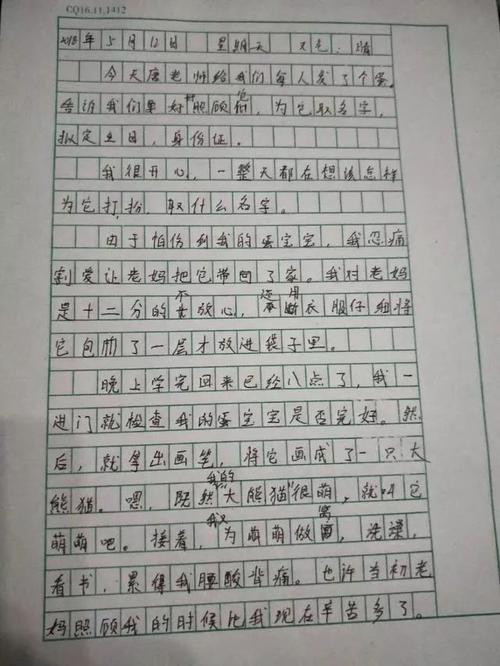 CQ16.11.1412
年5月12日 星期天 天气：晴
今天唐老师给我们每人发了个蛋。
告诉我们要好好照顾它，为它取名字，
拟定生日，身份证。
我很开心，一整天都在想该怎样
为它打扮，取什么名字。
由于怕伤到我的蛋宝宝，我忍痛
割爱让老妈把它带回了家。我对老妈
是十二分的不放心，还用衣服仔细将
它包肋了一层才放进袋子里。
晚上学完回来已经八点了，我一
进门就检查我的蛋宝宝是否完好。然
后，就拿出画笔，将它画成了一只大
熊猫。嗯，既然我的大熊猫很萌，就叫它
萌萌吧。接着，我又为萌萌做窝，洗澡，
看书，累得我腰酸背痛。也许当初老
妈照顾我的时候比我现在辛苦多了。